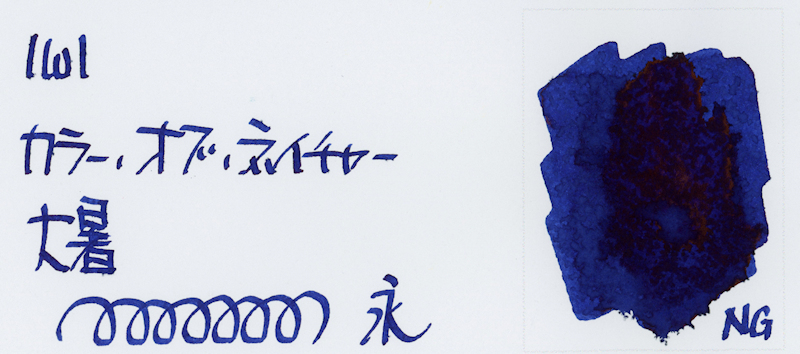 IWI
カラー・オブ・ネイチャー
大暑
永
NG